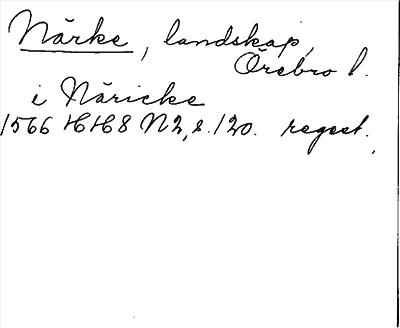 Närke, landskap,
Örebro l.
i Näricke
1566 HH8 N2, s. 120. regest.